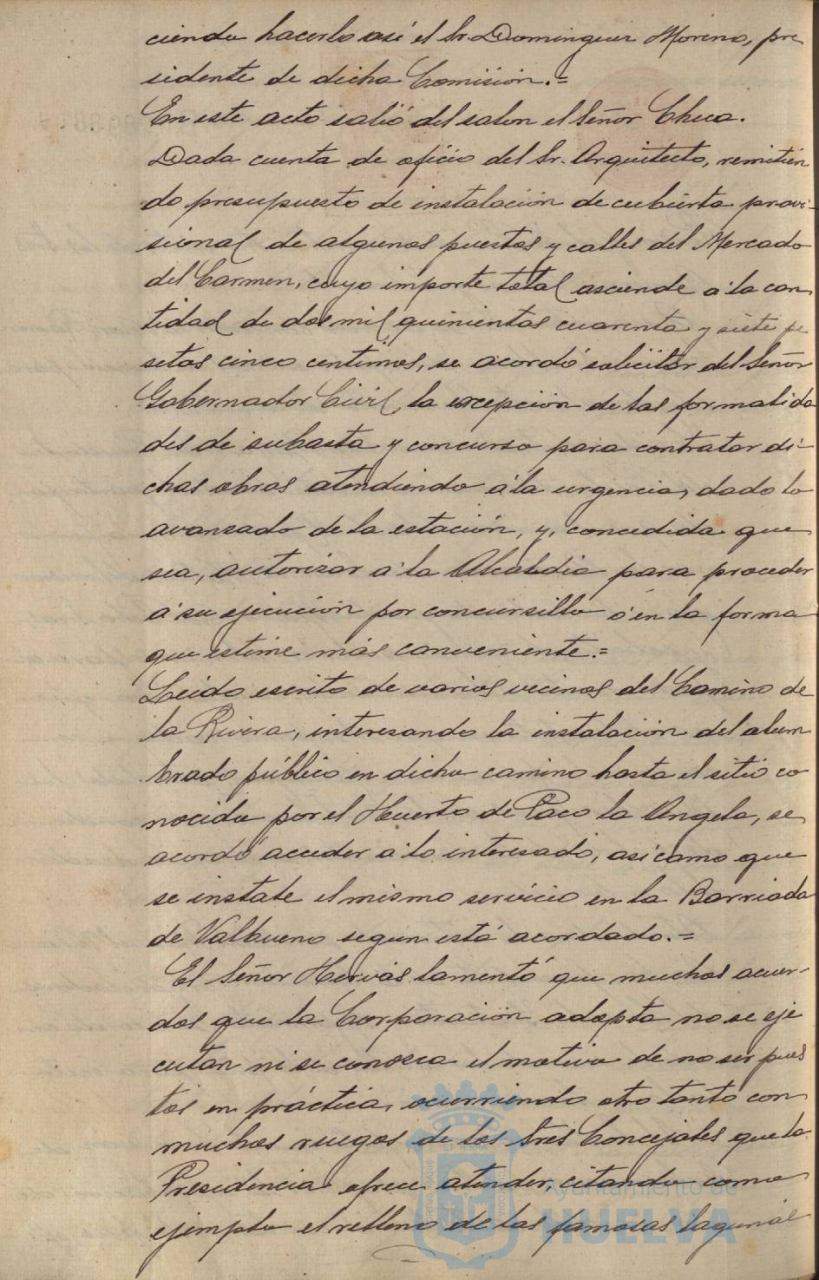 ciendo hacerlo así el Sr. Dominguez Moreno, pre
sidente de dicha Comisión.=
En este acto salió del salon el Señor Checa.
Dada cuenta de oficio del Sr. Arquitecto, remitien
do presupuesto de instalación de cubierta provi-
sional de algunos puestos y calles del Mercado
del Carmen, cuyo importe total asciende a la can
tidad de dos mil quinientas cuarenta y siete pe
setas cinco centimos, se acordó solicitar del Señor
Gobernador Civil, la excepción de las formalida
des de subasta y concurso para contratar di-
chas obras atendiendo á la urgencia, dado lo
avanzado de la estación, y, concedida que
sea, autorizar á la Alcaldia para proceder
á su ejecución por concursillo ó en la forma
que estime más conveniente.=
Leido escrito de varios vecinos del Camino de
la Rivera, interesando la instalación del alum
brado público en dicho camino hasta el sitio co
nocido por el Huerto de Paco la Angela, se
acordó acceder a lo interesado, asi como que
se instale el mismo servicio en la Barriada
de Valbueno segun está acordado.=
El Señor Hervás lamentó que muchos acuer-
dos que la Corporación adopta no se eje
cutan ni se conozca el motivo de no ser pues
tos en práctica, ocurriendo otro tanto con
muchos ruegos de los Sres Concejales que la
Presidencia ofrece atender, citando como
ejemplo el relleno de las famosas lagunas
Ayuntamiento de
HUELVA